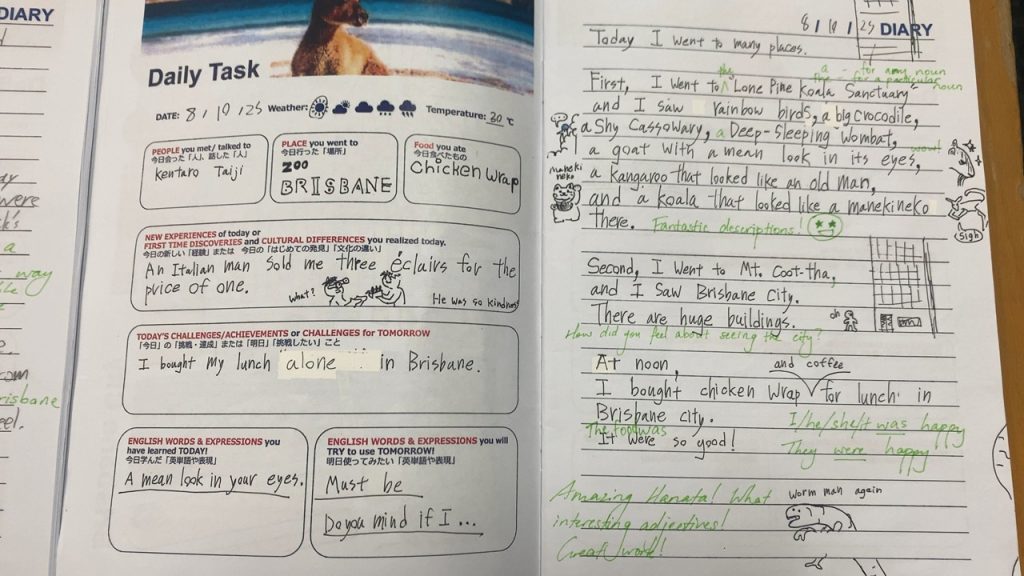 DIARY
way
were
a
way
Brisbane
eel.
Daily Task
DATE: 8/10/25 Weather: Temperature: 20 ℃
PEOPLE you met/ talked to
今日会った「人」、話した「人」
Kentaro Taiji
PLACE you went to
今日行った「場所」
ZOO
BRISBANE
Food you ate
今日食べたもの
Chicken Wrap
NEW EXPERIENCES of today or
FIRST TIME DISCOVERIES and CULTURAL DIFFERENCES you realized today.
今日の新しい「経験」または 今日の「はじめての発見」「文化の違い」
An Italian man sold me three éclairs for the
price of one.
What?
He was so kindness
TODAY'S CHALLENGES/ACHIEVEMENTS or CHALLENGES for TOMORROW
「今日」の「挑戦・達成」または「明日」「挑戦したい」こと
I bought my lunch alone in Brisbane.
ENGLISH WORDS & EXPRESSIONS you
have learned TODAY!
今日学んだ「英単語や表現」
A mean look in your eyes.
ENGLISH WORDS & EXPRESSIONS you will
TRY to use TOMORROW!
明日使ってみたい「英単語や表現」
Must be
Do you mind if I ...
8/10/25 DIARY
Today I went to many places.
a - for any noun
the - for a particular noun
First, I went to the Lone Pine Koala Sanctuary
and I saw rainbow birds, a big crocodile,
a Shy Cassowary, a Deep-Sleeping Wombat,
a goat with a mean look in its eyes,
a kangaroo that looked like an old man,
and a koala that looked like a manekineko
there. Fantastic descriptions!
maneki
neko
wow!
(sigh)
Second, I went to Mt. Coot-tha,
and I saw Brisbane City.
There are huge buildings.
oh
How did you feel about seeing the city?
At noon,
and coffee
I bought chicken wrap for lunch in
Brisbane city.
The food was
It were so good!
I/he/she/it was happy
They were happy
Amazing Hanata! What
interesting adjectives!
Great work!
worm man again